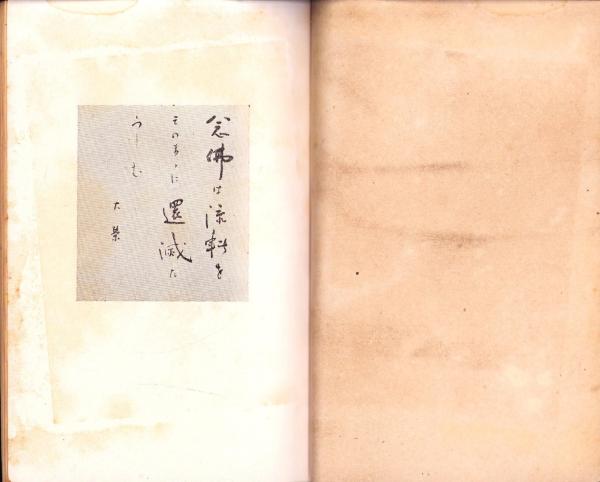 念佛は流轉を
そのまゝに還滅た
らしむ
大榮